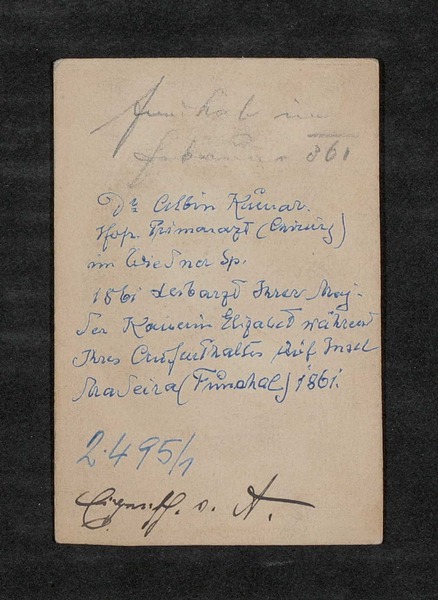 Funchal im
Februar 861
Dr Albin Kumar.
Hof. Primararzt (Chirurg)
im Wiedner Sp.
1861 Leibarzt Ihrer Maj.
der Kaiserin Elizabet während
Ihres Aufenthaltes auf Insel
Madeira (Funchal) 1861.
2.495/1
v. A.